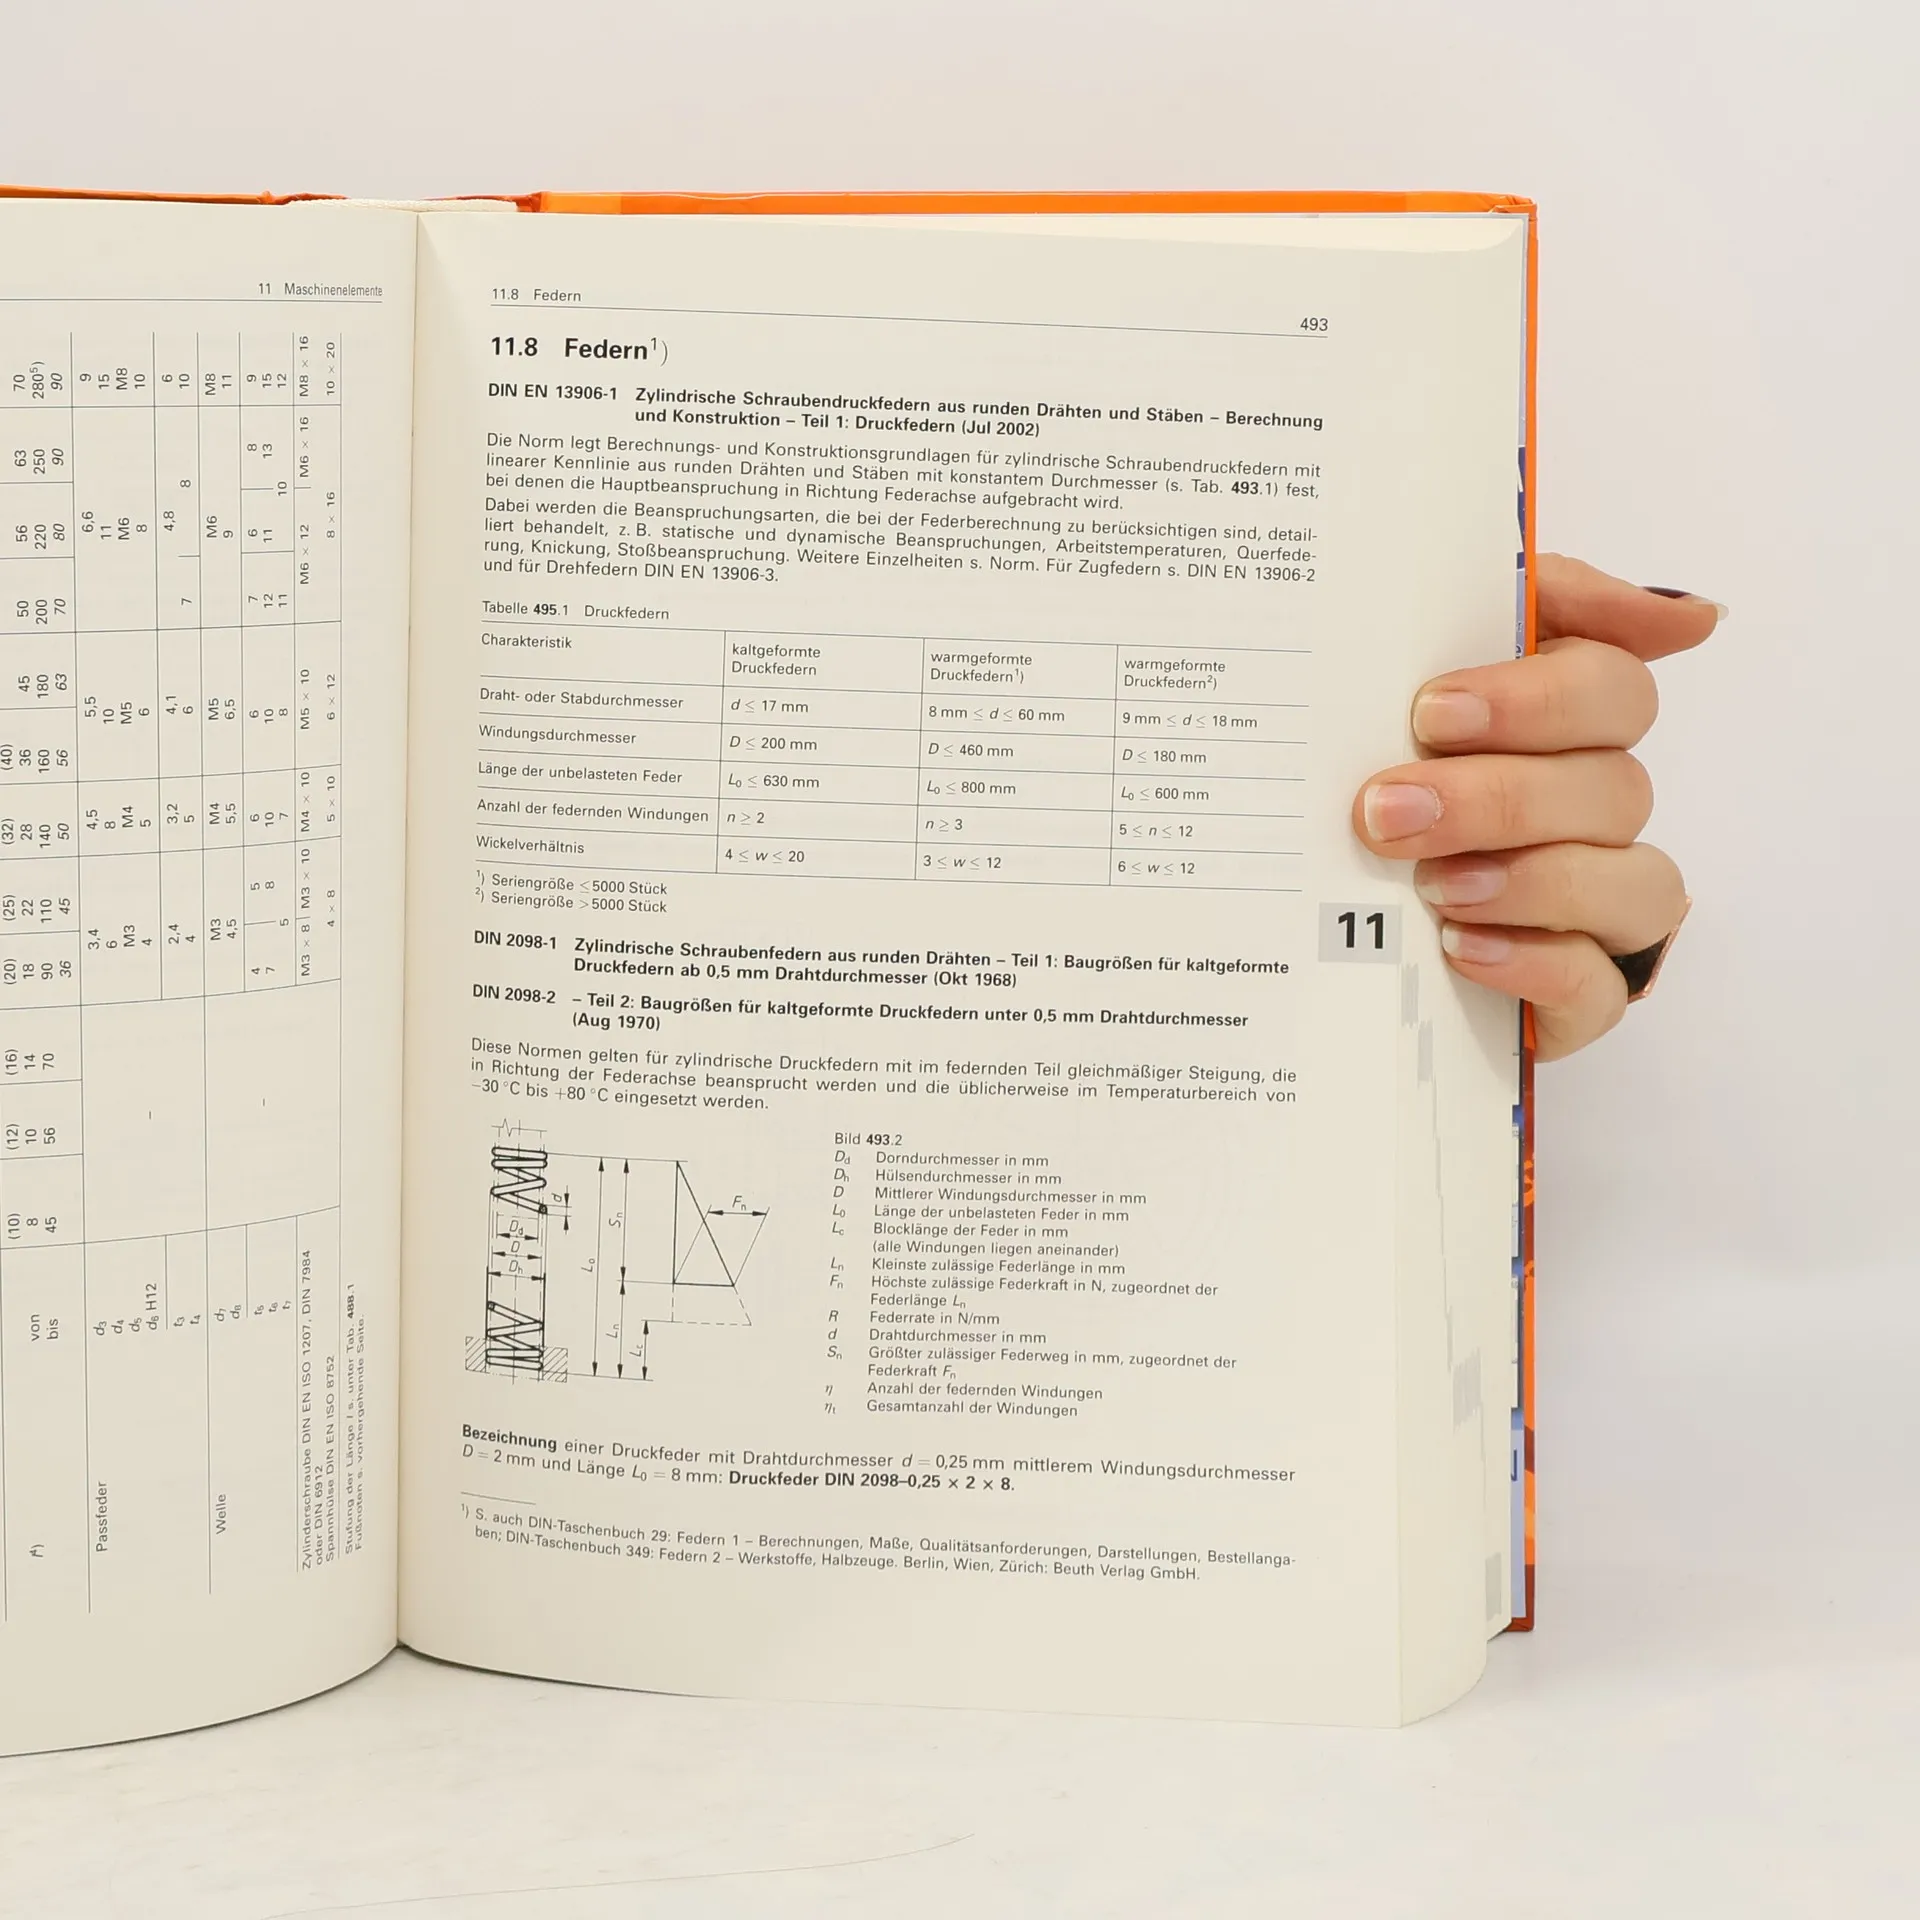 11 Maschinenelemente
(10) (12) (16) (20) (25) (32) (40)
von 8 10 14 18 22 28 36 45 50 56 63 70
bis 45 56 70 90 110 140 160 180 200 220 250 280⁵)
36 45 50 56 63 70 80 90 90
Passfeder
d₃ – 3,4 4,5 5,5 6,6 9
d₄ 6 8 10 11 15
d₅ M3 M4 M5 M6 M8
d₆ H12 4 5 6 8 10
t₃ 2,4 3,2 4,1 4,8 6
t₄ 4 5 6 7 8 10
Welle
d₇ – M3 M4 M5 M6 M8
d₈ 4,5 5,5 6,5 9 11
t₅ 4 5 6 6 7 6 8 9
t₆ 7 8 10 10 12 11 13 15
t₇ 5 7 8 11 10 12
Zylinderschraube DIN EN ISO 1207, DIN 7984 M3 × 8 M3 × 10 M4 × 10 M5 × 10 M6 × 12 M6 × 16 M8 × 16
oder DIN 6912
Spannhülse DIN EN ISO 8752 4 × 8 5 × 10 6 × 12 8 × 16 10 × 20
Stufung der Länge l s. unter Tab. 488.1
Fußnoten s. vorhergehende Seite.
11.8 Federn
493
11.8 Federn¹)
DIN EN 13906-1 Zylindrische Schraubendruckfedern aus runden Drähten und Stäben – Berechnung
und Konstruktion – Teil 1: Druckfedern (Jul 2002)
Die Norm legt Berechnungs- und Konstruktionsgrundlagen für zylindrische Schraubendruckfedern mit
linearer Kennlinie aus runden Drähten und Stäben mit konstantem Durchmesser (s. Tab. 493.1) fest,
bei denen die Hauptbeanspruchung in Richtung Federachse aufgebracht wird.
Dabei werden die Beanspruchungsarten, die bei der Federberechnung zu berücksichtigen sind, detail-
liert behandelt, z. B. statische und dynamische Beanspruchungen, Arbeitstemperaturen, Querfede-
rung, Knickung, Stoßbeanspruchung. Weitere Einzelheiten s. Norm. Für Zugfedern s. DIN EN 13906-2
und für Drehfedern DIN EN 13906-3.
Tabelle 495.1 Druckfedern
Charakteristik kaltgeformte warmgeformte warmgeformte
Druckfedern Druckfedern¹) Druckfedern²)
Draht- oder Stabdurchmesser d ≤ 17 mm 8 mm ≤ d ≤ 60 mm 9 mm ≤ d ≤ 18 mm
Windungsdurchmesser D ≤ 200 mm D ≤ 460 mm D ≤ 180 mm
Länge der unbelasteten Feder L₀ ≤ 630 mm L₀ ≤ 800 mm L₀ ≤ 600 mm
Anzahl der federnden Windungen n ≥ 2 n ≥ 3 5 ≤ n ≤ 12
Wickelverhältnis 4 ≤ w ≤ 20 3 ≤ w ≤ 12 6 ≤ w ≤ 12
¹) Seriengröße ≤ 5000 Stück
²) Seriengröße > 5000 Stück
11
DIN 2098-1 Zylindrische Schraubenfedern aus runden Drähten – Teil 1: Baugrößen für kaltgeformte
Druckfedern ab 0,5 mm Drahtdurchmesser (Okt 1968)
DIN 2098-2 – Teil 2: Baugrößen für kaltgeformte Druckfedern unter 0,5 mm Drahtdurchmesser
(Aug 1970)
Diese Normen gelten für zylindrische Druckfedern mit im federnden Teil gleichmäßiger Steigung, die
in Richtung der Federachse beansprucht werden und die üblicherweise im Temperaturbereich von
−30 °C bis +80 °C eingesetzt werden.
d
D_d
D
D_h
L₀
S_n
L_n
L_c
F_n
Bild 493.2
D_d Dorndurchmesser in mm
D_h Hülsendurchmesser in mm
D Mittlerer Windungsdurchmesser in mm
L₀ Länge der unbelasteten Feder in mm
L_c Blocklänge der Feder in mm
(alle Windungen liegen aneinander)
L_n Kleinste zulässige Federlänge in mm
F_n Höchste zulässige Federkraft in N, zugeordnet der
Federlänge L_n
R Federrate in N/mm
d Drahtdurchmesser in mm
S_n Größter zulässiger Federweg in mm, zugeordnet der
Federkraft F_n
η Anzahl der federnden Windungen
η_t Gesamtanzahl der Windungen
Bezeichnung einer Druckfeder mit Drahtdurchmesser d = 0,25 mm mittlerem Windungsdurchmesser
D = 2 mm und Länge L₀ = 8 mm: Druckfeder DIN 2098–0,25 × 2 × 8.
¹) S. auch DIN-Taschenbuch 29: Federn 1 – Berechnungen, Maße, Qualitätsanforderungen, Darstellungen, Bestellanga-
ben; DIN-Taschenbuch 349: Federn 2 – Werkstoffe, Halbzeuge. Berlin, Wien, Zürich: Beuth Verlag GmbH.